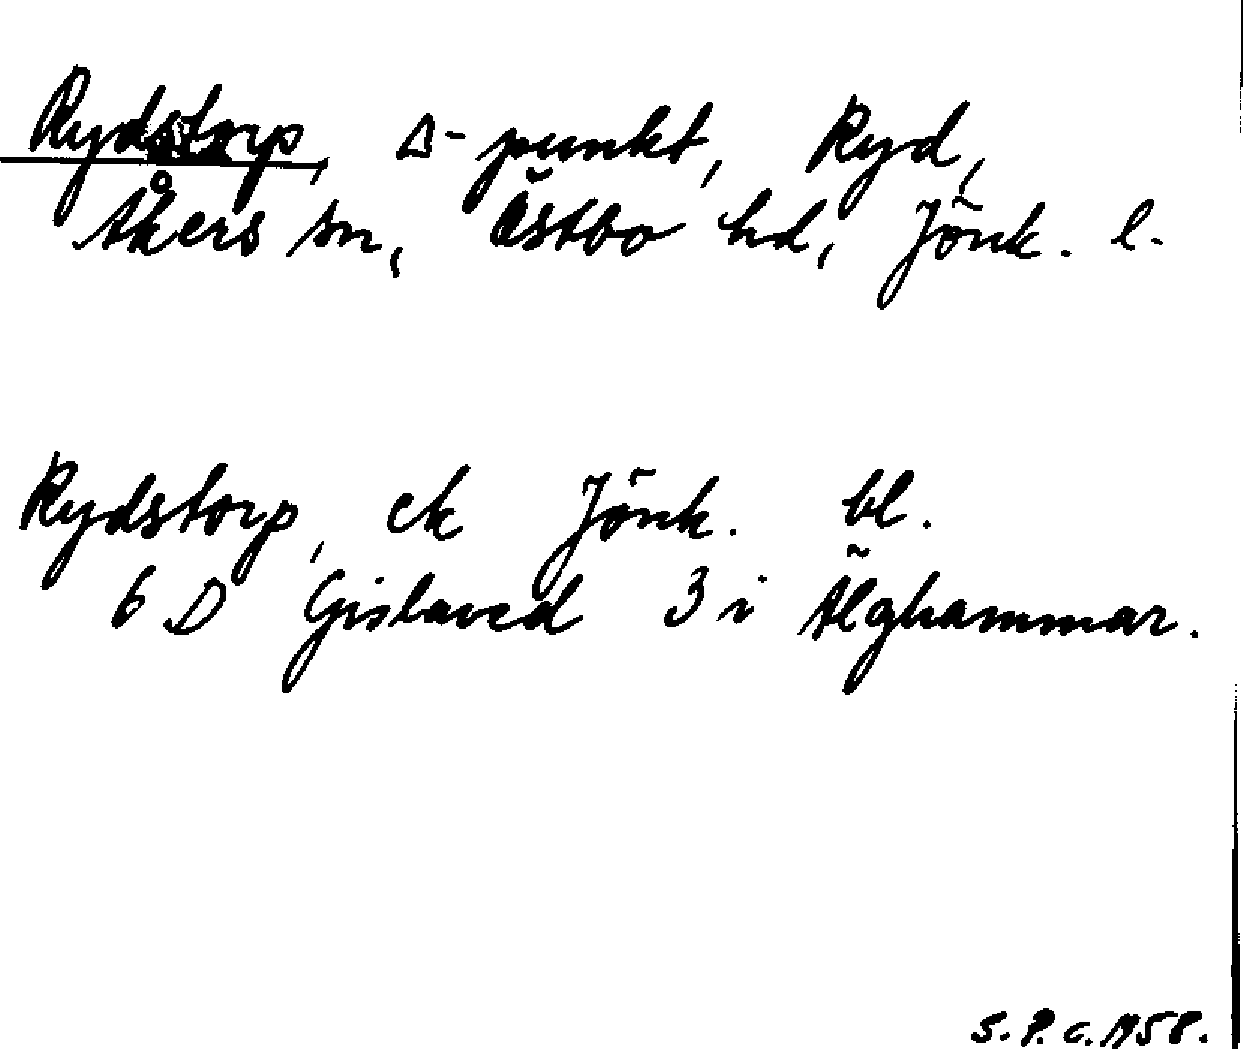 Rydstorp, Δ-punkt, Ryd,
Åkers sn, Östbo hd, Jönk. l.
Rydstorp, ek Jönk. bl.
6 D Gislaved 3 i Älghammar.
S. P. C. 1958.